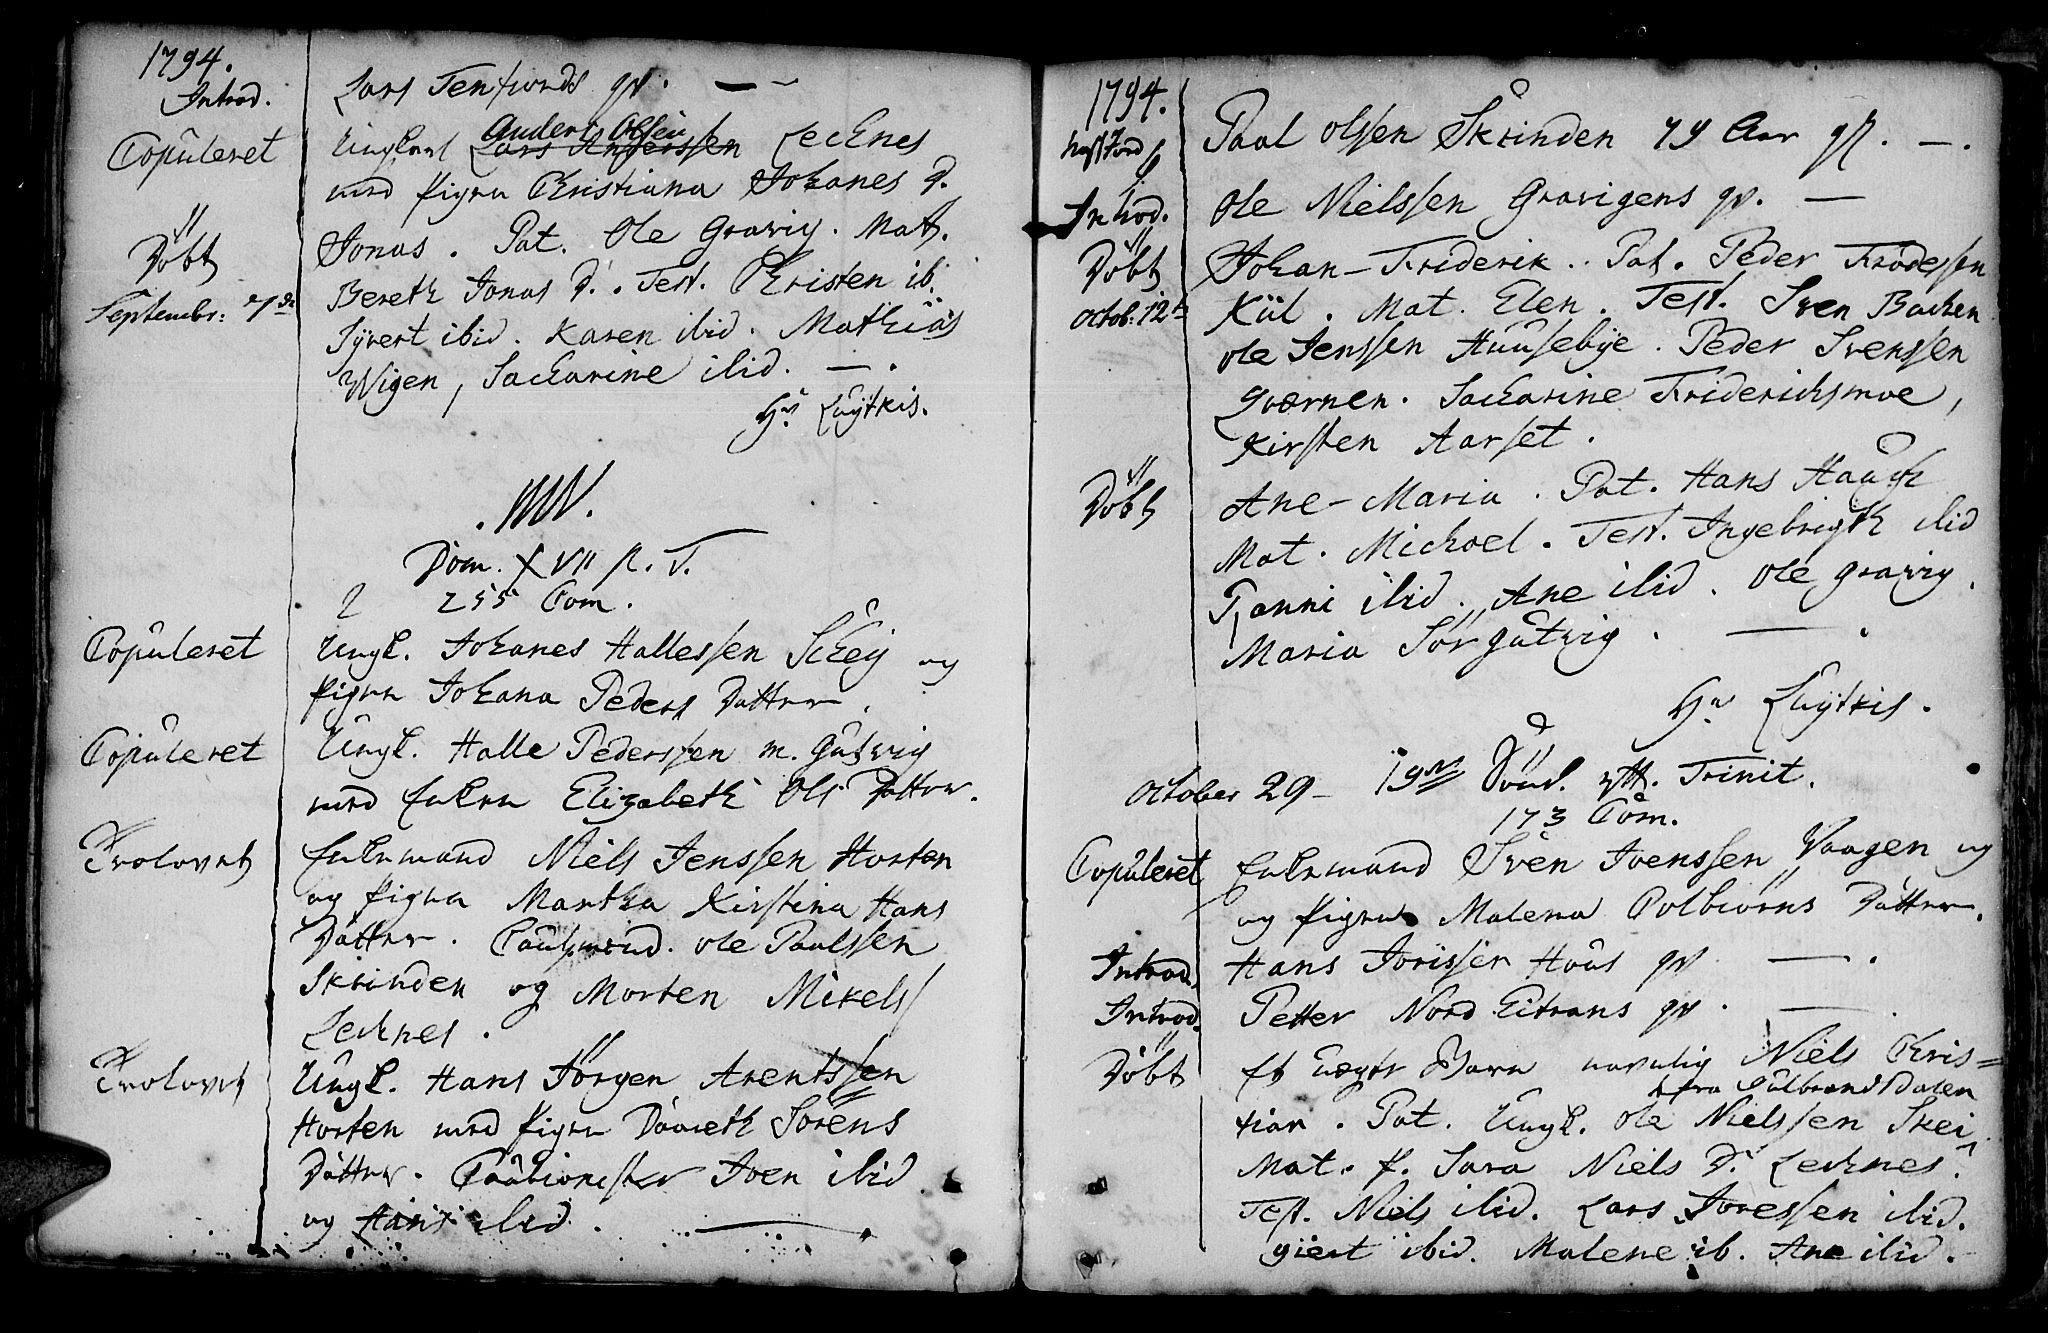 1794.
Introd. Lars Tenfiords qv. — –
Copuleret Ungkarl Anders Olsen Lars Anderssen Lecknes
med Pigen Christiana Johanes D.
Döbt Jonas. Pat. Ole Gravig. Mat.
Septembr: 7de Bereth Jonas D. Test. Christen ib.
Syvert ibid. Karen ibid. Mathias
Wigen, Sacharine ibid. —.
Hr Luytkis.
Dom. XVII p. T.
255 Com.
Copuleret Ungk. Johanes Hallessen Schey og
Pigen Johana Peders Datter.
Copuleret Ungk. Halle Pederssen m. Gutvig
med Enken Elizabeth Ols Datter.
Trolovet Enkemand Niels Jenssen Horten
og Pigen Martha Kirstina Hans
Datter. Ole Paulssen
Skrinden og Morten Mikels
Lecknes.
Trolovet Ungk. Hans Jörgen Arentssen
Horten med Pigen Dorreth Sörens
Datter. Cautionister Iven ibid
og Hans ibid. —
1794.
Paal Olssen Skrinden 79 Aar gl. —.
Introd. Ole Nielssen Gravigens qv. —
Döbt Johan-Friderik. Pat. Peder Frodessen
Octob: 12te Kiil. Mat. Elen. Test. Sven Bachen
Ole Jenssen Huusebye. Peder Svenssen
Qværnen. Sacharine Friderichsmoe,
Kirsten Aarset.
Döbt Ane-Maria. Pat. Hans Haugh
Mat. Michoel. Test. Ingebrigth ibid
Tanni ibid. Ane ibid. Ole Gravig.
Maria Sörgutvig. —.
Hr Luytkis.
October 29 – 19de Sönd. eft. Trinit.
173 Com.
Copuleret Enkemand Sven Ivenssen Vaagen og
og Pigen Malena Colbiörns Datter.
Introd. Hans Jorissen Hous qv. —.
Introd. Petter Nord Eitrans qv. —
Döbt Et Uægte Barn navnlig Niels Chris=
fra Gulbrand Dalen
tian. Pat. Ungk. Ole Nielssen Skei
Mat. P. Sara Niels D. Lecknes.
Test. Niels ibid. Lars Joressen ibid.
giert ibid. Malene ib. Ane ibid.